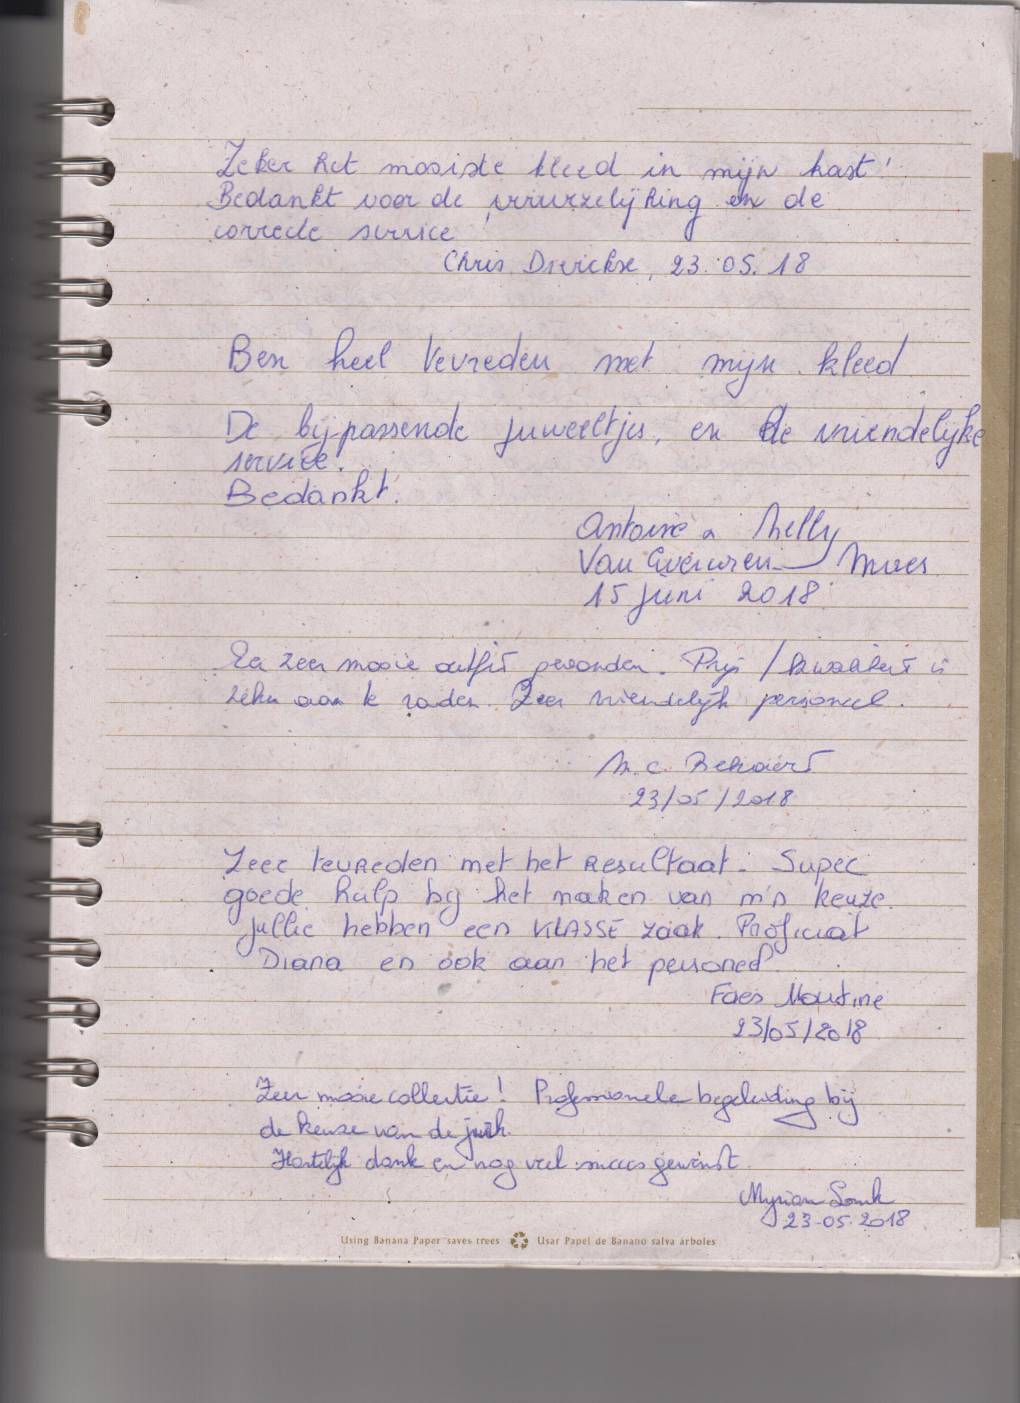 Zeker het mooiste kleed in mijn kast!
Bedankt voor de en de
correcte service!
Chris Dierickse, 23.05.18
Ben heel tevreden met mijn kleed
De bijpassende juweeltjes, en de vriendelijke
service.
Bedankt!
Antoine & Nelly
Van
15 juni 2018
Een zeer mooie outfit gevonden. Prijs / kwaliteit is
zeker aan te raden. Zeer vriendelijk personeel.
M.C. Bekaert
23/05/2018
Zeer tevreden met het resultaat. Super
goede hulp bij het maken van m'n keuze.
Jullie hebben een KLASSE zaak. Proficiat
Diana en ook aan het personeel.
Faes
23/05/2018
Zeer mooie collectie! Professionele begeleiding bij
de keuze van de jurk.
Hartelijk dank en nog veel succes gewenst
Myriam
23-05-2018
Using Banana Paper saves trees Usar Papel de Banano salva árboles